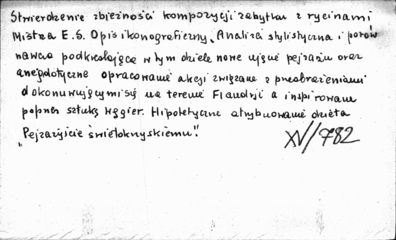 Stwierdzenie zbieżności kompozycji zabytku z rycinami
Mistrza E.S. Opis ikonograficzny. Analiza stylistyczna i porów
nawcza podkreślająca w tym dziele nowe ujęcie pejzażu oraz
anegdotyczne opracowanie akcji związane z przeobrażeniami
dokonującymi się na terenie Flandrii a inspirowane
poprzez sztukę węgier. Hipotetyczne atrybuowanie dzieła
"Pejzażyście świętokrzyskiemu".
XV/782